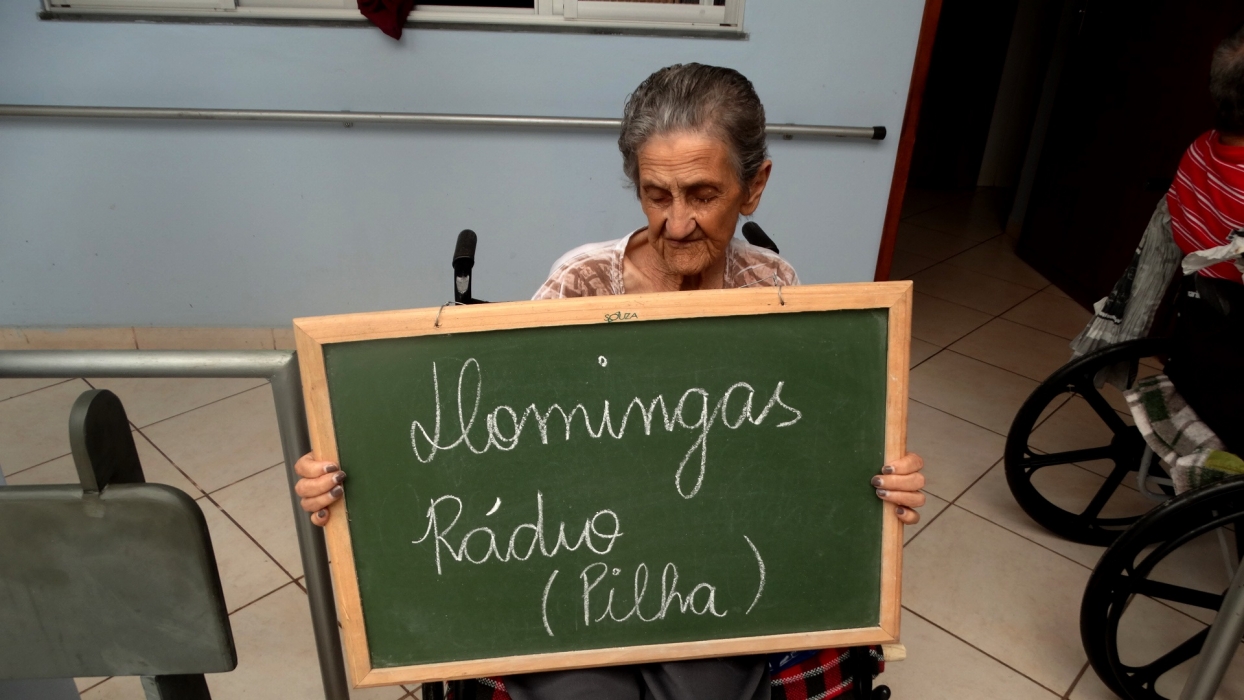 SOUZA
Domingas
Rádio
(Pilha)